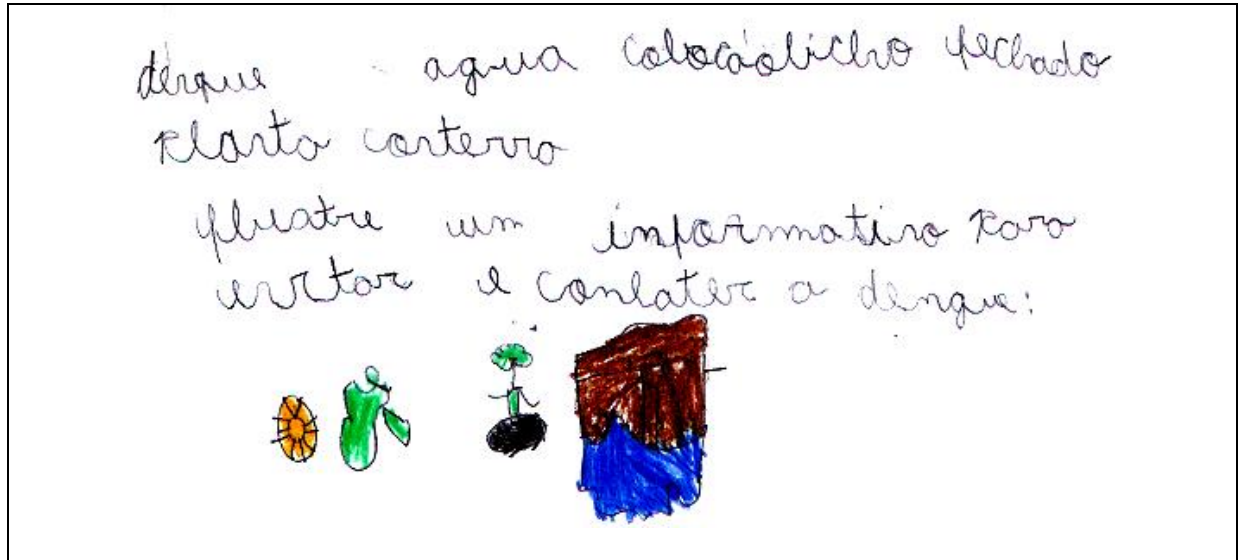 denque agua colocaolicho fechado
planta conterra
Ilustre um informativo para
evitar e conbater a dengue: